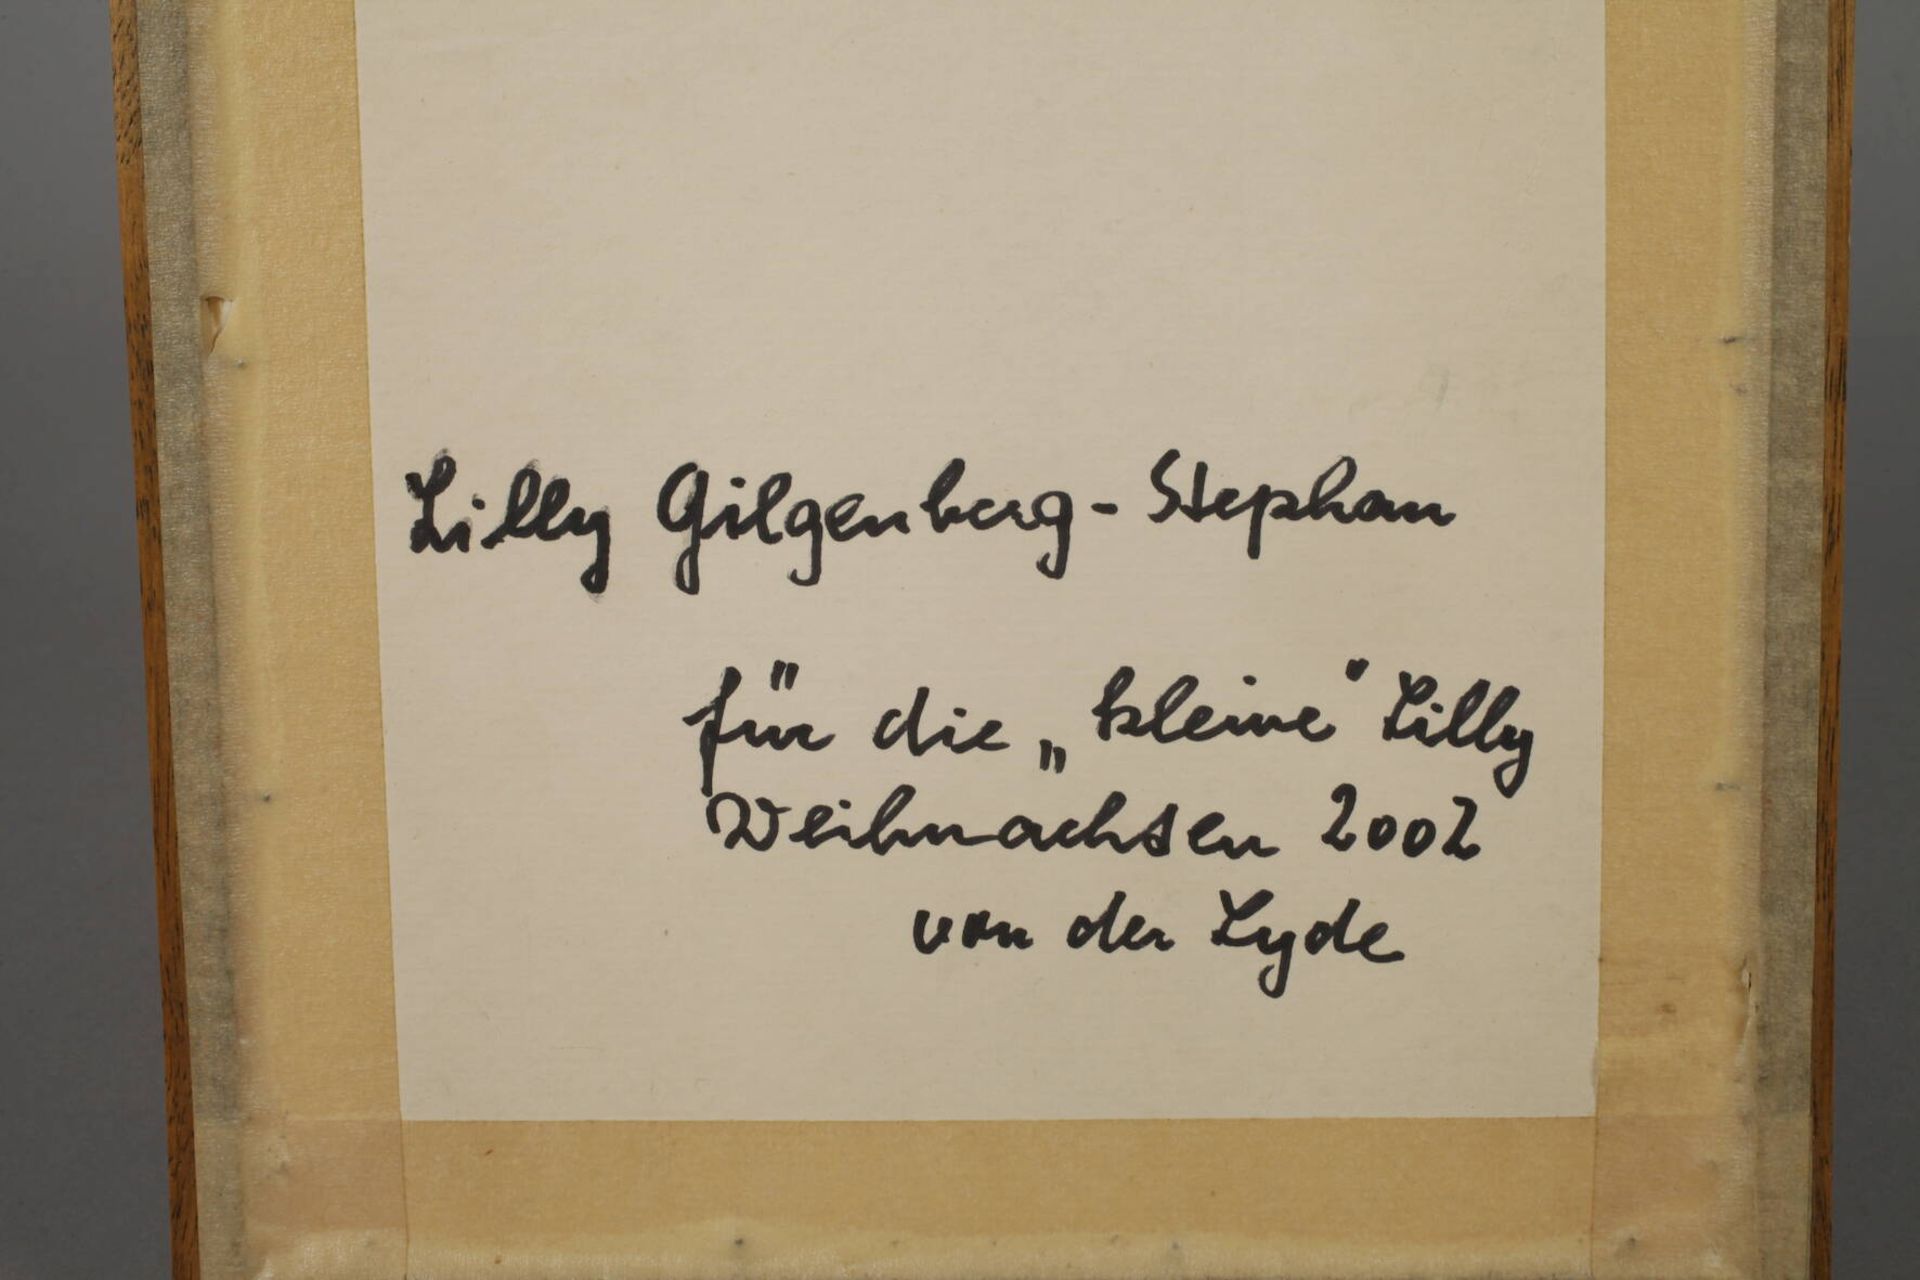 Lilly Gilgenberg-Stephan
für die „kleine" Lilly
Weihnachten 2002
von der Lyde